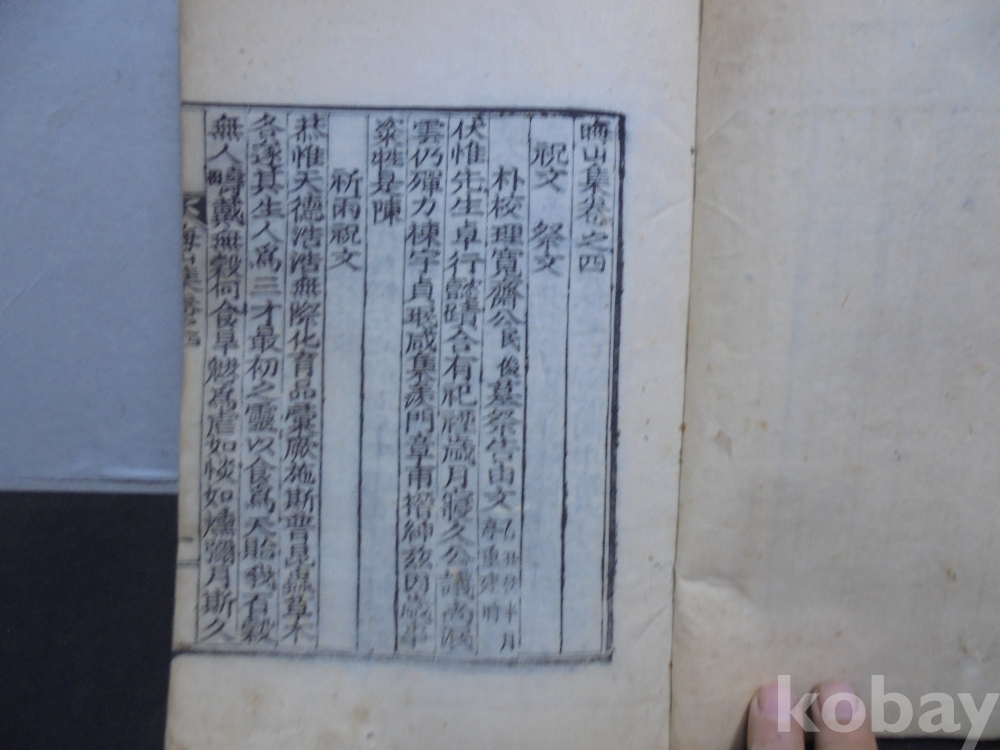 晦山集卷之四
祝文 祭文
朴校理寬齋公民俊墓祭告由文
伏惟先生卓行懿蹟合有祀禋歲月寢久公議尚泯
雲仍殫力棟宇貞珉咸集溪門章甫搢紳玆因歲事
粢牲是陳
祈雨祝文
恭惟天德浩浩無際化育品彙厥施斯普昆蟲草木
各遂其生人爲三才最初之靈以食爲天貽我百穀
無人疇戴無穀何食旱魃爲虐如惔如燻彌月斯久
kobay